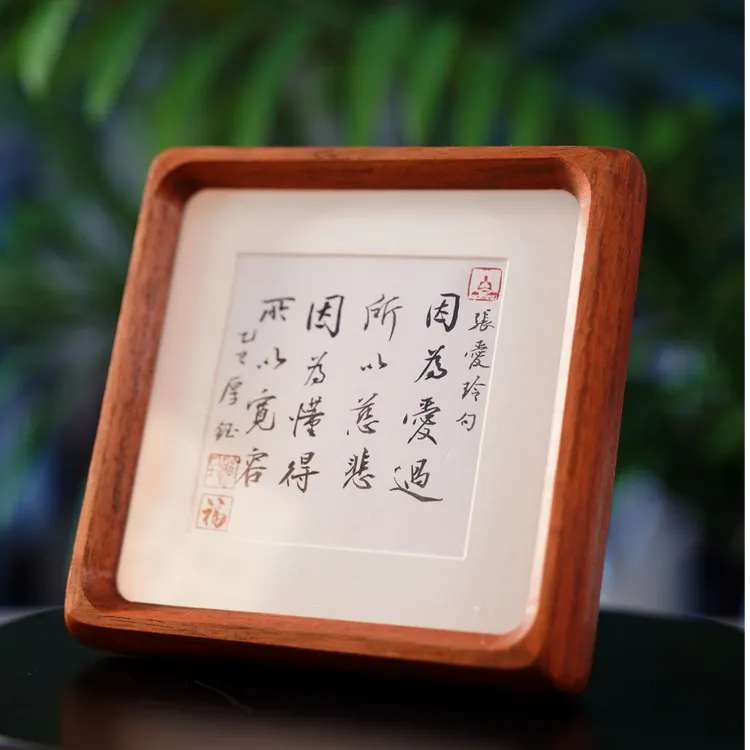 張愛玲句
因為愛過
所以慈悲
因為懂得
所以寬容
乙巳厚鈺
福